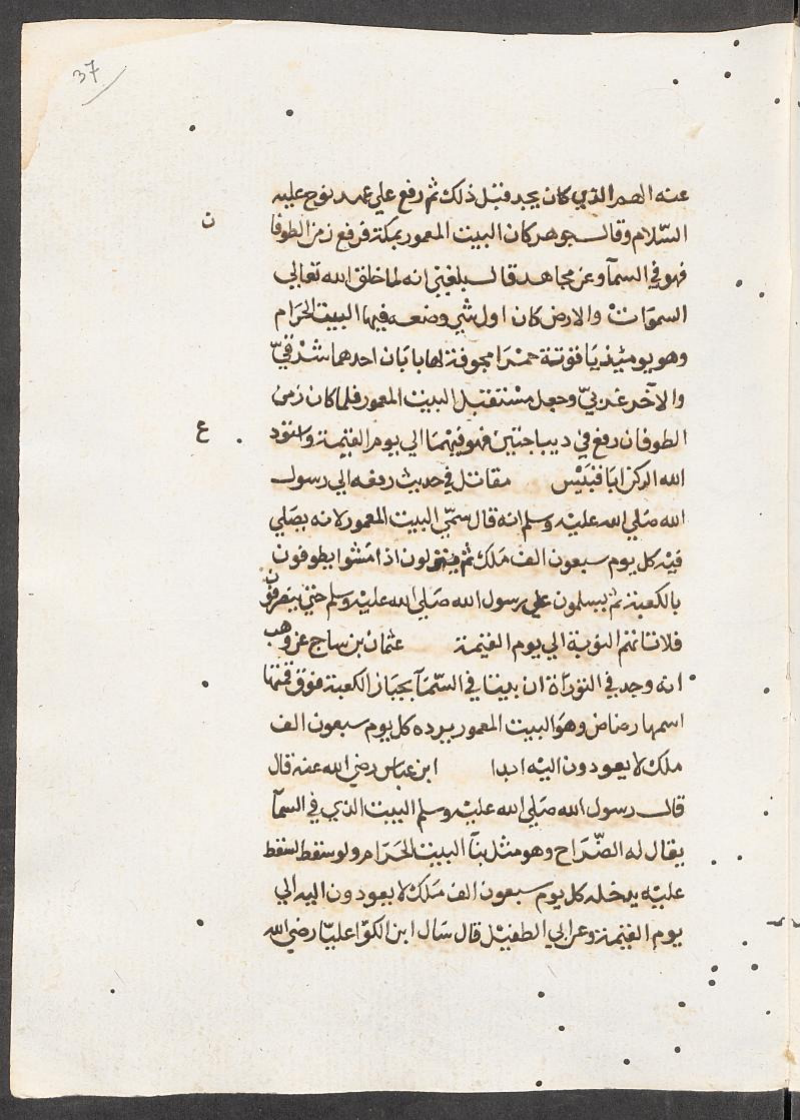 37
عنه الصر الذي كان يجد قبل ذلك ثم رفع علي عهد نوح عليه
السلام وقال جوهر كان البيت المعمور بمكة فرفع زمن الطوفا
ن
فهو في السمآ وعن مجاهد قال بلغني انه لما خلق الله تعالي
السموات والارض كان اول شي وضعه فيها البيت الحرام
وهو يومئذ ياقوتة حمرا مجوفة لها بابان احدهما شرقيّ
والآخر غربيّ وجعل مستقبل البيت المعمور فلما كان زمن
الطوفان رفع في ديباجتين فهو فيهما الي يوم القيمة واستود
ع
الله الركن ابا قبيس مقاتل في حديث رفعه الي رسول
الله صلي الله عليه وسلم انه قال سمّي البيت المعمور لانه يصلي
فيه كل يوم سبعون الف ملك ثم ينزلون اذا امسوا يطوفون
بالكعبة ثم يسلمون علي رسول الله صلي الله عليه وسلم حتي ينصرفون
فلا تنالهم النوبة الي يوم القيمة عثمان بن ساج عن وهب
انه وجد في التوراة ان بيتا في السمآ بحيال الكعبة فوق قمتها
اسمها رضاض وهو البيت المعمور يرده كل يوم سبعون الف
ملك لا يعودون اليه ابدا ابن عباس رضي الله عنه قال
قال رسول الله صلي الله عليه وسلم البيت الذي في السمآ
يقال له الضّراح وهو مثل بنآ البيت الحرام ولو سقط لسقط
عليه يدخله كل يوم سبعون الف ملك لا يعودون اليه الي
يوم القيمة وعن ابي الطفيل قال سال ابن الكوّا عليا رضي الله